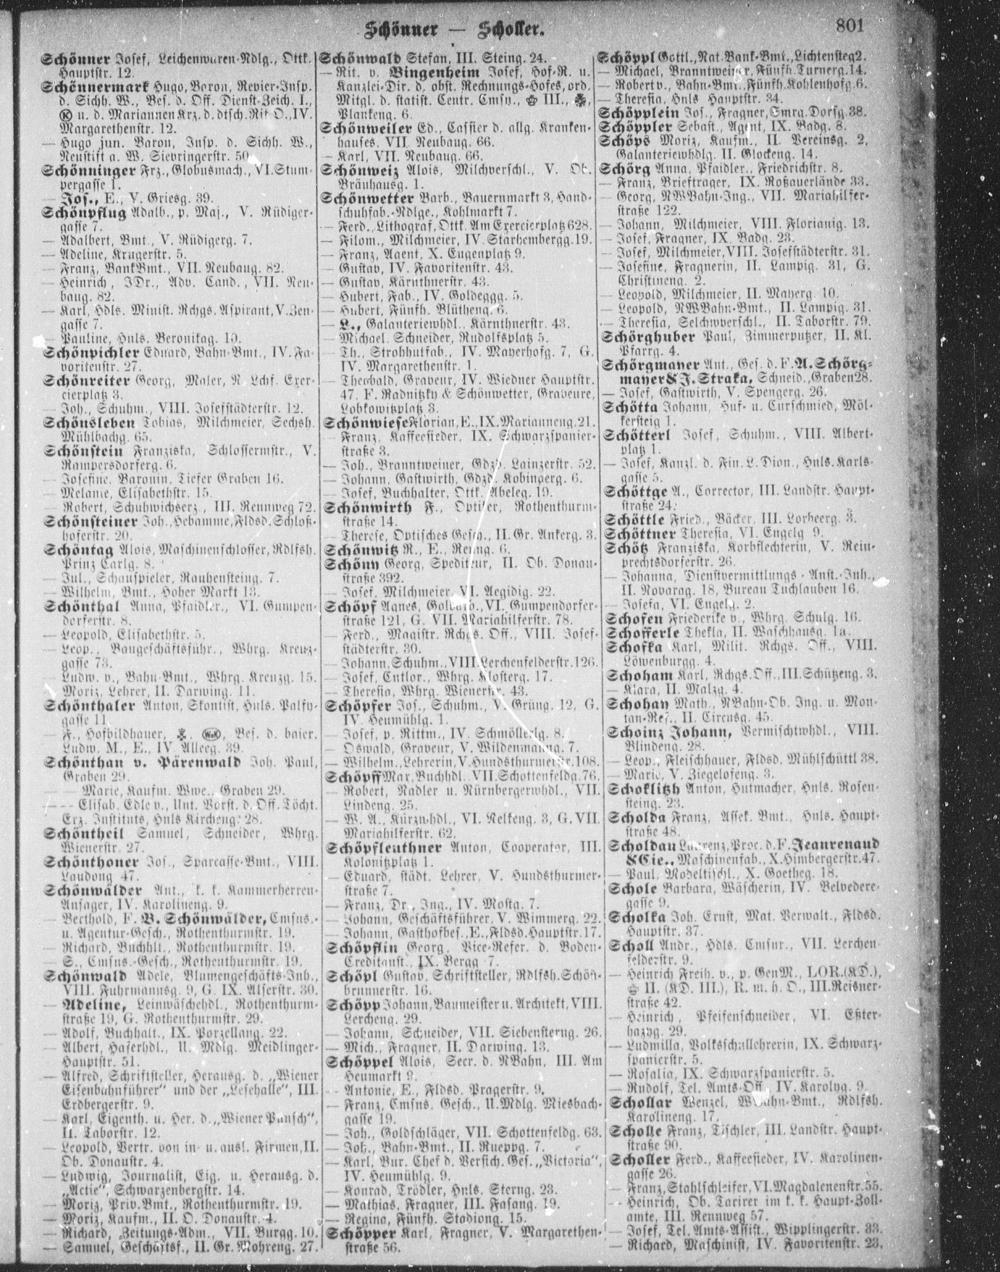 Schönner — Scholler.
801
Schönner Josef, Leichenwaren-Ndlg., Ottk.
Hauptstr. 12.
Schönnermark Hugo, Baron, Revier-Insp.
d. Sichh. W., Bes. d. Off. Dienst-Zeich. I.,
u. d. Mariannen Krz. d. dtsch. Rit O., IV.
Margarethenstr. 12.
— Hugo jun. Baron, Insp. d. Sichh. W.,
Neustift a. W. Sievringerstr. 50
Schönninger Frz., Globusmach., VI. Stum-
pergasse 1.
— Jos., E., V. Griesg. 39.
Schönpflug Adalb., p. Maj., V. Rüdiger-
gasse 7.
— Adalbert, Bmt., V. Rüdigerg. 7.
— Adeline, Krugerstr. 5.
— Franz, Bank Bmt., VII. Neubaug. 82.
— Heinrich, JDr., Adv. Cand., VII. Neu-
baug. 82.
— Karl, Hdls. Minist. Rchgs. Aspirant, V. Zen-
gasse 7.
— Pauline, Hnls. Beronikag. 10.
Schönpichler Eduard, Bahn-Bmt., IV. Fa-
voritenstr. 27.
Schönreiter Georg, Maler, N. Lchf. Exer-
cierplatz 3.
— Joh., Schuhm., VIII. Josefstädterstr. 12.
Schönsleben Tobias, Milchmeier, Sechsh.
Mühlbachg. 65.
Schönstein Franziska, Schlossermstr., V.
Rampersdorferg. 6.
— Josefine, Baronin, Tiefer Graben 16.
— Melanie, Elisabethstr. 15.
— Robert, Schuhwichserz., III. Rennweg 72.
Schönsteiner Joh., Hebamme, Fldsd. Schloß-
hoferstr. 20.
Schöntag Alois, Maschinenschlosser, Rdlfsh.
Prinz Carlg. 8.
— Jul., Schauspieler, Rauhensteing. 7.
— Wilhelm, Bmt., Hoher Markt 13.
Schönthal Anna, Pfaidler., VI. Gumpen-
dorferstr. 8.
— Leopold, Elisabethstr. 5.
— Leop., Baugeschäftsführ., Whrg. Kreuz-
gasse 73.
— Ludw. v., Bahn-Bmt., Whrg. Kreuzg. 15.
— Moriz, Lehrer, II. Darwing. 11.
Schönthaler Anton, Skontist, Hnls. Palffy-
gasse 11
— F., Hofbildhauer, Bes. d. baier.
Ludw. M., E., IV. Alleeg. 39.
Schönthan v. Pärenwald Joh. Paul,
Graben 29.
— — Marie, Kaufm. Wwe., Graben 29.
— — Elisab. Edle v., Unt. Vorst. d. Off. Töcht.
Erz. Instituts, Hnls. Kircheng. 28.
Schöntheil Samuel, Schneider, Whrg.
Wienerstr. 27.
Schönthoner Jos., Sparcasse-Bmt., VIII.
Laudong. 47
Schönwälder Ant., k. k. Kammerherren-
Ansager, IV. Karolineng. 9.
— Berthold, F. B. Schönwälder, Cmsns.-
u. Agentur-Gesch., Rothenthurmstr. 19.
— Richard, Buchhlt., Rothenthurmstr. 19.
— S., Cmsns.-Gesch., Rothenthurmstr. 19.
Schönwald Adele, Blumengeschäfts-Inh.,
VIII. Fuhrmannsg. 9, G. IX. Alserstr. 30.
— Adeline, Leinwäschehdl., Rothenthurm-
straße 19, G. Rothenthurmstr. 29.
— Adolf, Buchhalt., IX. Porzellang. 22.
— Albert, Haferhdl., U. Mdlg. Meidlinger-
Hauptstr. 51.
— Alfred, Schriftsteller, Herausg. d. „Wiener
Eisenbahnführer“ und der „Lesehalle“, III.
Erdbergerstr. 9.
— Karl, Eigenth. u. Her. d. „Wiener Punsch“,
II. Taborstr. 12.
— Leopold, Vertr. von in- u. ausl. Firmen, II.
Ob. Donaustr. 4.
— Ludwig, Journalist, Eig. u. Herausg. d.
„Actie“, Schwarzenbergstr. 14.
— Moriz, Priv. Bmt., Rothenthurmstr. 19.
— Moriz, Kaufm., II. O. Donaustr. 4.
— Richard, Zeitungs-Adm., VII. Burgg. 10.
— Samuel, Geschäftsf., II. Gr. Mohreng. 27.
Schönwald Stefan, III. Steing. 24.
— Rit. v. Bingenheim Josef, Hof-R. u.
Kanzlei-Dir. d. obst. Rechnungs-Hofes, ord.
Mitgl. d. statist. Centr. Cmsn., III.,
Plankeng. 6.
Schönweiler Ed., Cassier d. allg. Kranken-
hauses, VII. Neubaug. 66.
— Karl, VII. Neubaug. 66.
Schönweiz Alois, Milchverschl., V. Ob.
Bräuhausg. 1.
Schönwetter Barb., Bauernmarkt 3, Hand-
schuhfab.-Ndlge., Kohlmarkt 7.
— Ferd., Lithograf, Ottk. Am Exercierplatz 628.
— Filom., Milchmeier, IV. Starhembergg. 19.
— Franz, Agent, X. Eugenplatz 9.
— Gustav, IV. Favoritenstr. 43.
— Gustav, Kärnthnerstr. 43.
— Hubert, Fab., IV. Goldeggg. 5.
— Hubert, Fünfh. Blütheng. 6.
— L., Galanteriewhdl., Kärnthnerstr. 43.
— Michael, Schneider, Rudolfsplatz 5.
— Th., Strohhutfab., IV. Mayerhofg. 7, G.
IV. Margarethenstr. 1.
— Theobald, Graveur, IV. Wiedner Hauptstr.
47. F. Radnitzky & Schönwetter, Graveure,
Lobkowitzplatz 3.
Schönwiese Florian, E., IX. Marianneng. 21.
— Franz, Kaffeesieder, IX. Schwarzspanier-
straße 3.
— Joh., Branntweiner, Gdzb. Lainzerstr. 52.
— Johann, Gastwirth, Gdzd. Kobingerg. 6.
— Josef, Buchhalter, Ottk. Abeleg. 19.
Schönwirth F., Optiker, Rothenthurm-
straße 14.
— Therese, Optisches Gesch., II. Gr. Ankerg. 3.
Schönwitz R., E., Renng. 6.
Schöny Georg, Spediteur, II. Ob. Donau-
straße 392.
— Josef, Milchmeier, VI. Aegidig. 22.
Schöpf Agnes, Goldarb., VI. Gumpendorfer-
straße 121, G. VII. Mariahilferstr. 78.
— Ferd., Magistr. Rchgs. Off., VIII. Josef-
städterstr. 30.
— Johann, Schuhm., VIII. Lerchenfelderstr. 126.
— Josef, Cutlor., Whrg. Klosterg. 17.
— Theresia, Whrg. Wienerstr. 43.
Schöpfer Jos., Schuhm., V. Grüng. 12, G.
IV. Heumühlg. 1.
— Josef, p. Rittm., IV. Schmöllerlg. 8.
— Oswald, Graveur, V. Wildenmanng. 7.
— Wilhelm., Lehrerin, V. Hundsthurmerstr. 108.
Schöpff Mar, Buchhdl., VII. Schottenfeldg. 76.
— Robert, Nadler u. Nürnbergerwhdl., VII.
Lindeng. 25.
— W. A., Kürzwhdl., VI. Nelkeng. 3, G. VII.
Mariahilferstr. 62.
Schöpfleuthner Anton, Cooperator, III.
Kolonitzplatz 1.
— Eduard, städt. Lehrer, V. Hundsthurmer-
straße 7.
— Franz, Dr., Ing., IV. Mosta. 7.
— Johann, Geschäftsführer, V. Wimmerg. 22.
— Johann, Gasthofbes., E., Fldsd. Hauptstr. 17.
Schöpflin Georg, Vice-Refer. d. Boden-
Creditanst., IX. Bergg. 7.
Schöpl Gustav, Schriftsteller, Rdlfsh. Schön-
brunnerstr. 16.
Schöpp Johann, Baumeister u. Architekt, VIII.
Lercheng. 29.
— Johann, Schneider, VII. Siebensterng. 26.
— Mich., Fragner, II. Darwing. 13.
Schöppel Alois, Secr. d. NBahn, III. Am
Heumarkt 9.
— Antonie, E., Fldsd. Pragerstr. 9.
— Franz, Cmsns. Gesch., U. Mdlg. Miesbach-
gasse 19.
— Joh., Goldschläger, VII. Schottenfeldg. 63.
— Joh., Bahn-Bmt., II. Rueppg. 7.
— Karl, Bur. Chef d. Versich. Ges. „Victoria“,
IV. Heumühlg. 9.
— Konrad, Trödler, Hnls. Sterng. 23.
— Mathias, Fragner, III. Fasang. 19.
— Regina, Fünfh. Stadiong. 15.
Schöpper Karl, Fragner, V. Margarethen-
straße 56.
Schöppl Gottl., Nat. Bank-Bmt., Lichtensteg 2.
— Michael, Branntweiner, Fünfh. Turnerg. 14.
— Robert v., Bahn-Bmt., Fünfh. Kohlenhofg. 6.
— Theresia, Hnls. Hauptstr. 34.
Schöpplein Jos., Fragner, Smrg. Dorfg. 38.
Schöppler Sebast., Agent, IX. Badg. 8.
Schöps Moriz, Kaufm., II. Vereinsg. 2,
Galanteriewhdlg. II. Glockeng. 14.
Schörg Anna, Pfaidler., Friedrichstr. 8.
— Franz, Briefträger, IX. Roßauerlände 33.
— Georg, NWBahn-Ing., VII. Mariahilfer-
straße 122.
— Johann, Milchmeier, VIII. Florianig. 13.
— Josef, Fragner, IX. Badg. 23.
— Josef, Milchmeier, VIII. Josefstädterstr. 31.
— Josefine, Fragnerin, II. Lampig. 31, G.
Christineng. 2.
— Leopold, Milchmeier, II. Mayerg. 10.
— Leopold, NWBahn-Bmt., II. Lampig. 31.
— Theresia, Selchwverschl., II. Taborstr. 79.
Schörghuber Paul, Zimmerputzer, II. Kl.
Pfarrg. 4.
Schörgmayer Ant., Ges. d. F. A. Schörg-
mayer & J. Straka, Schneid., Graben 28.
— Josef, Gastwirth, V. Spengerg. 26.
Schötta Johann, Huf- u. Curschmied, Möl-
kersteig 1.
Schötterl Josef, Schuhm., VIII. Albert-
platz 1.
— Josef, Kanzl. d. Fin. L. Dion., Hnls. Karls-
gasse 5.
Schöttge A., Corrector, III. Landstr. Haupt-
straße 24.
Schöttle Fried., Bäcker, III. Lorbeerg. 3.
Schöttner Theresia, VI. Engelg. 9.
Schötz Franziska, Korbflechterin, V. Rein-
prechtsdorferstr. 26.
— Johanna, Dienstvermittlungs-Anst.-Inh.,
II. Novarag. 18, Bureau Tuchlauben 16.
— Josefa, VI. Engelg. 2.
Schofen Friederike v., Whrg. Schulg. 16.
Schofferle Thekla, II. Waschhausg. 1a.
Schofka Karl, Milit. Rchgs. Off., VIII.
Löwenburgg. 4.
Schoham Karl, Rchgs. Off., III. Schützeng. 3.
— Klara, II. Malzg. 4.
Schohay Math., NBahn-Ob. Ing. u. Mon-
tan-Ref., II. Circusg. 45.
Schoinz Johann, Vermischtwhdl., VIII.
Blindeng. 28.
— Leop., Fleischhauer, Fldsd. Mühlschüttl 38.
— Marie, V. Ziegelofeng. 3.
Schoklitzh Anton, Hutmacher, Hnls. Rosen-
steing. 23.
Scholda Franz, Assek. Bmt., Hnls. Haupt-
straße 48.
Scholdau Laurenz, Proc. d. F. Jeaurenaud
& Cie., Maschinenfab., X. Himbergerstr. 47.
— Paul, Modeltischl., X. Goetheg. 18.
Schole Barbara, Wäscherin, IV. Belvedere-
gasse 9.
Scholka Joh. Ernst, Mat. Verwalt., Fldsd.
Hauptstr. 37.
Scholl Andr., Hdls. Cmsnr., VII. Lerchen-
felderstr. 9.
— Heinrich Freih. v., p. GenM., LOR. (KD.),
II. (KD. III.), R. m. h. O., III. Reisner-
straße 42.
— Heinrich, Pfeifenschneider, VI. Eßter-
hazyg. 29.
— Ludmilla, Volksschullehrerin, IX. Schwarz-
spanierstr. 5.
— Rosalia, IX. Schwarzspanierstr. 5.
— Rudolf, Tel. Amts-Off., IV. Karolyg. 9.
Schollar Wenzel, WBahn-Bmt., Rdlfsh.
Karolineng. 17.
Scholle Franz, Tischler, III. Landstr. Haupt-
straße 90.
Scholler Ferd., Kaffeesieder, IV. Karolinen-
gasse 26.
— Franz, Stahlschleifer, VI. Magdalenenstr. 55.
— Heinrich, Ob. Tarirer im k. k. Haupt-Zoll-
amte, III. Rennweg 57.
— Josef, Tel. Amts-Assist., Wipplingerstr. 33.
— Richard, Maschinist, IV. Favoritenstr. 23.